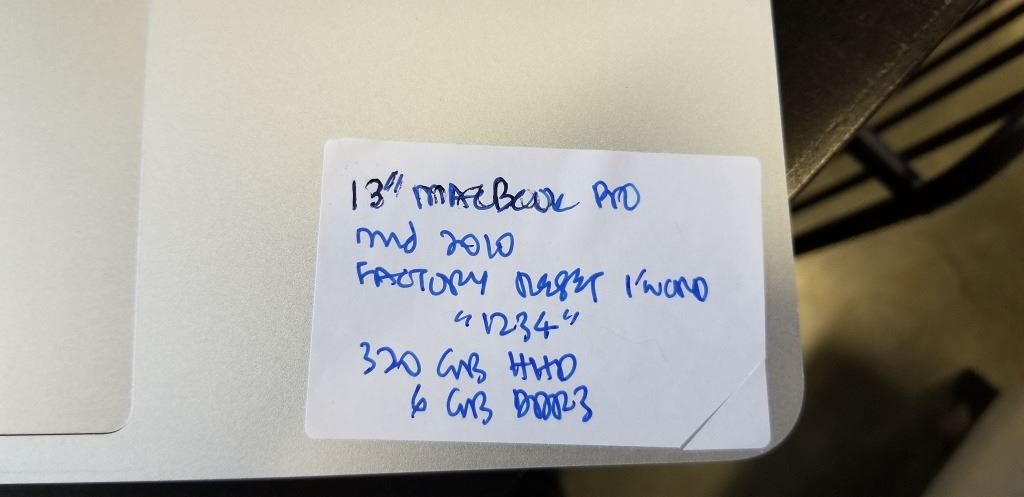 13" MACBOOK PRO
mid 2010
FACTORY RESET P'WORD
"1234"
320 GB HHD
6 GB DDR3